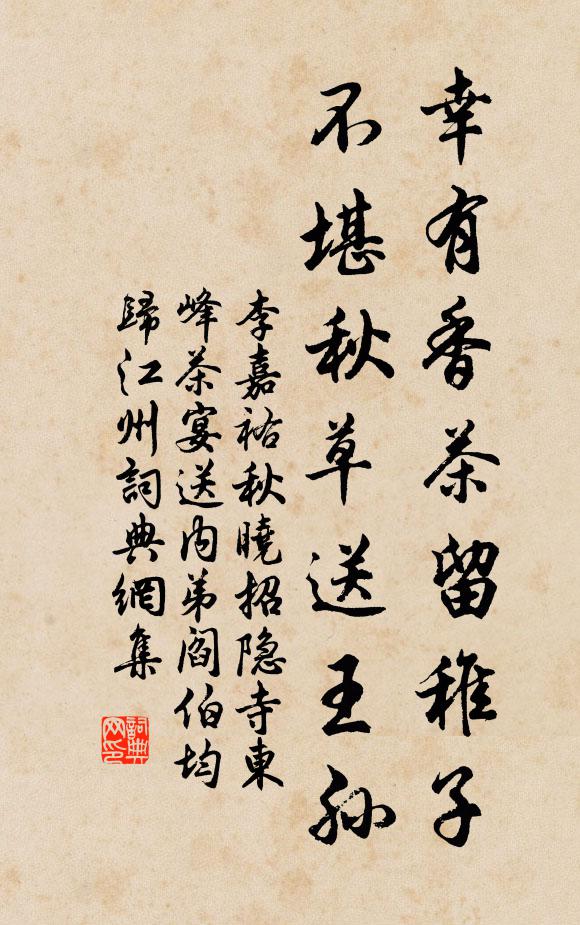 幸有香茶留稚子
不堪秋草送王孙
李嘉祐秋曉招隐寺東
峰茶宴送内弟阎伯均
歸江州詞典網集
詞典
网印